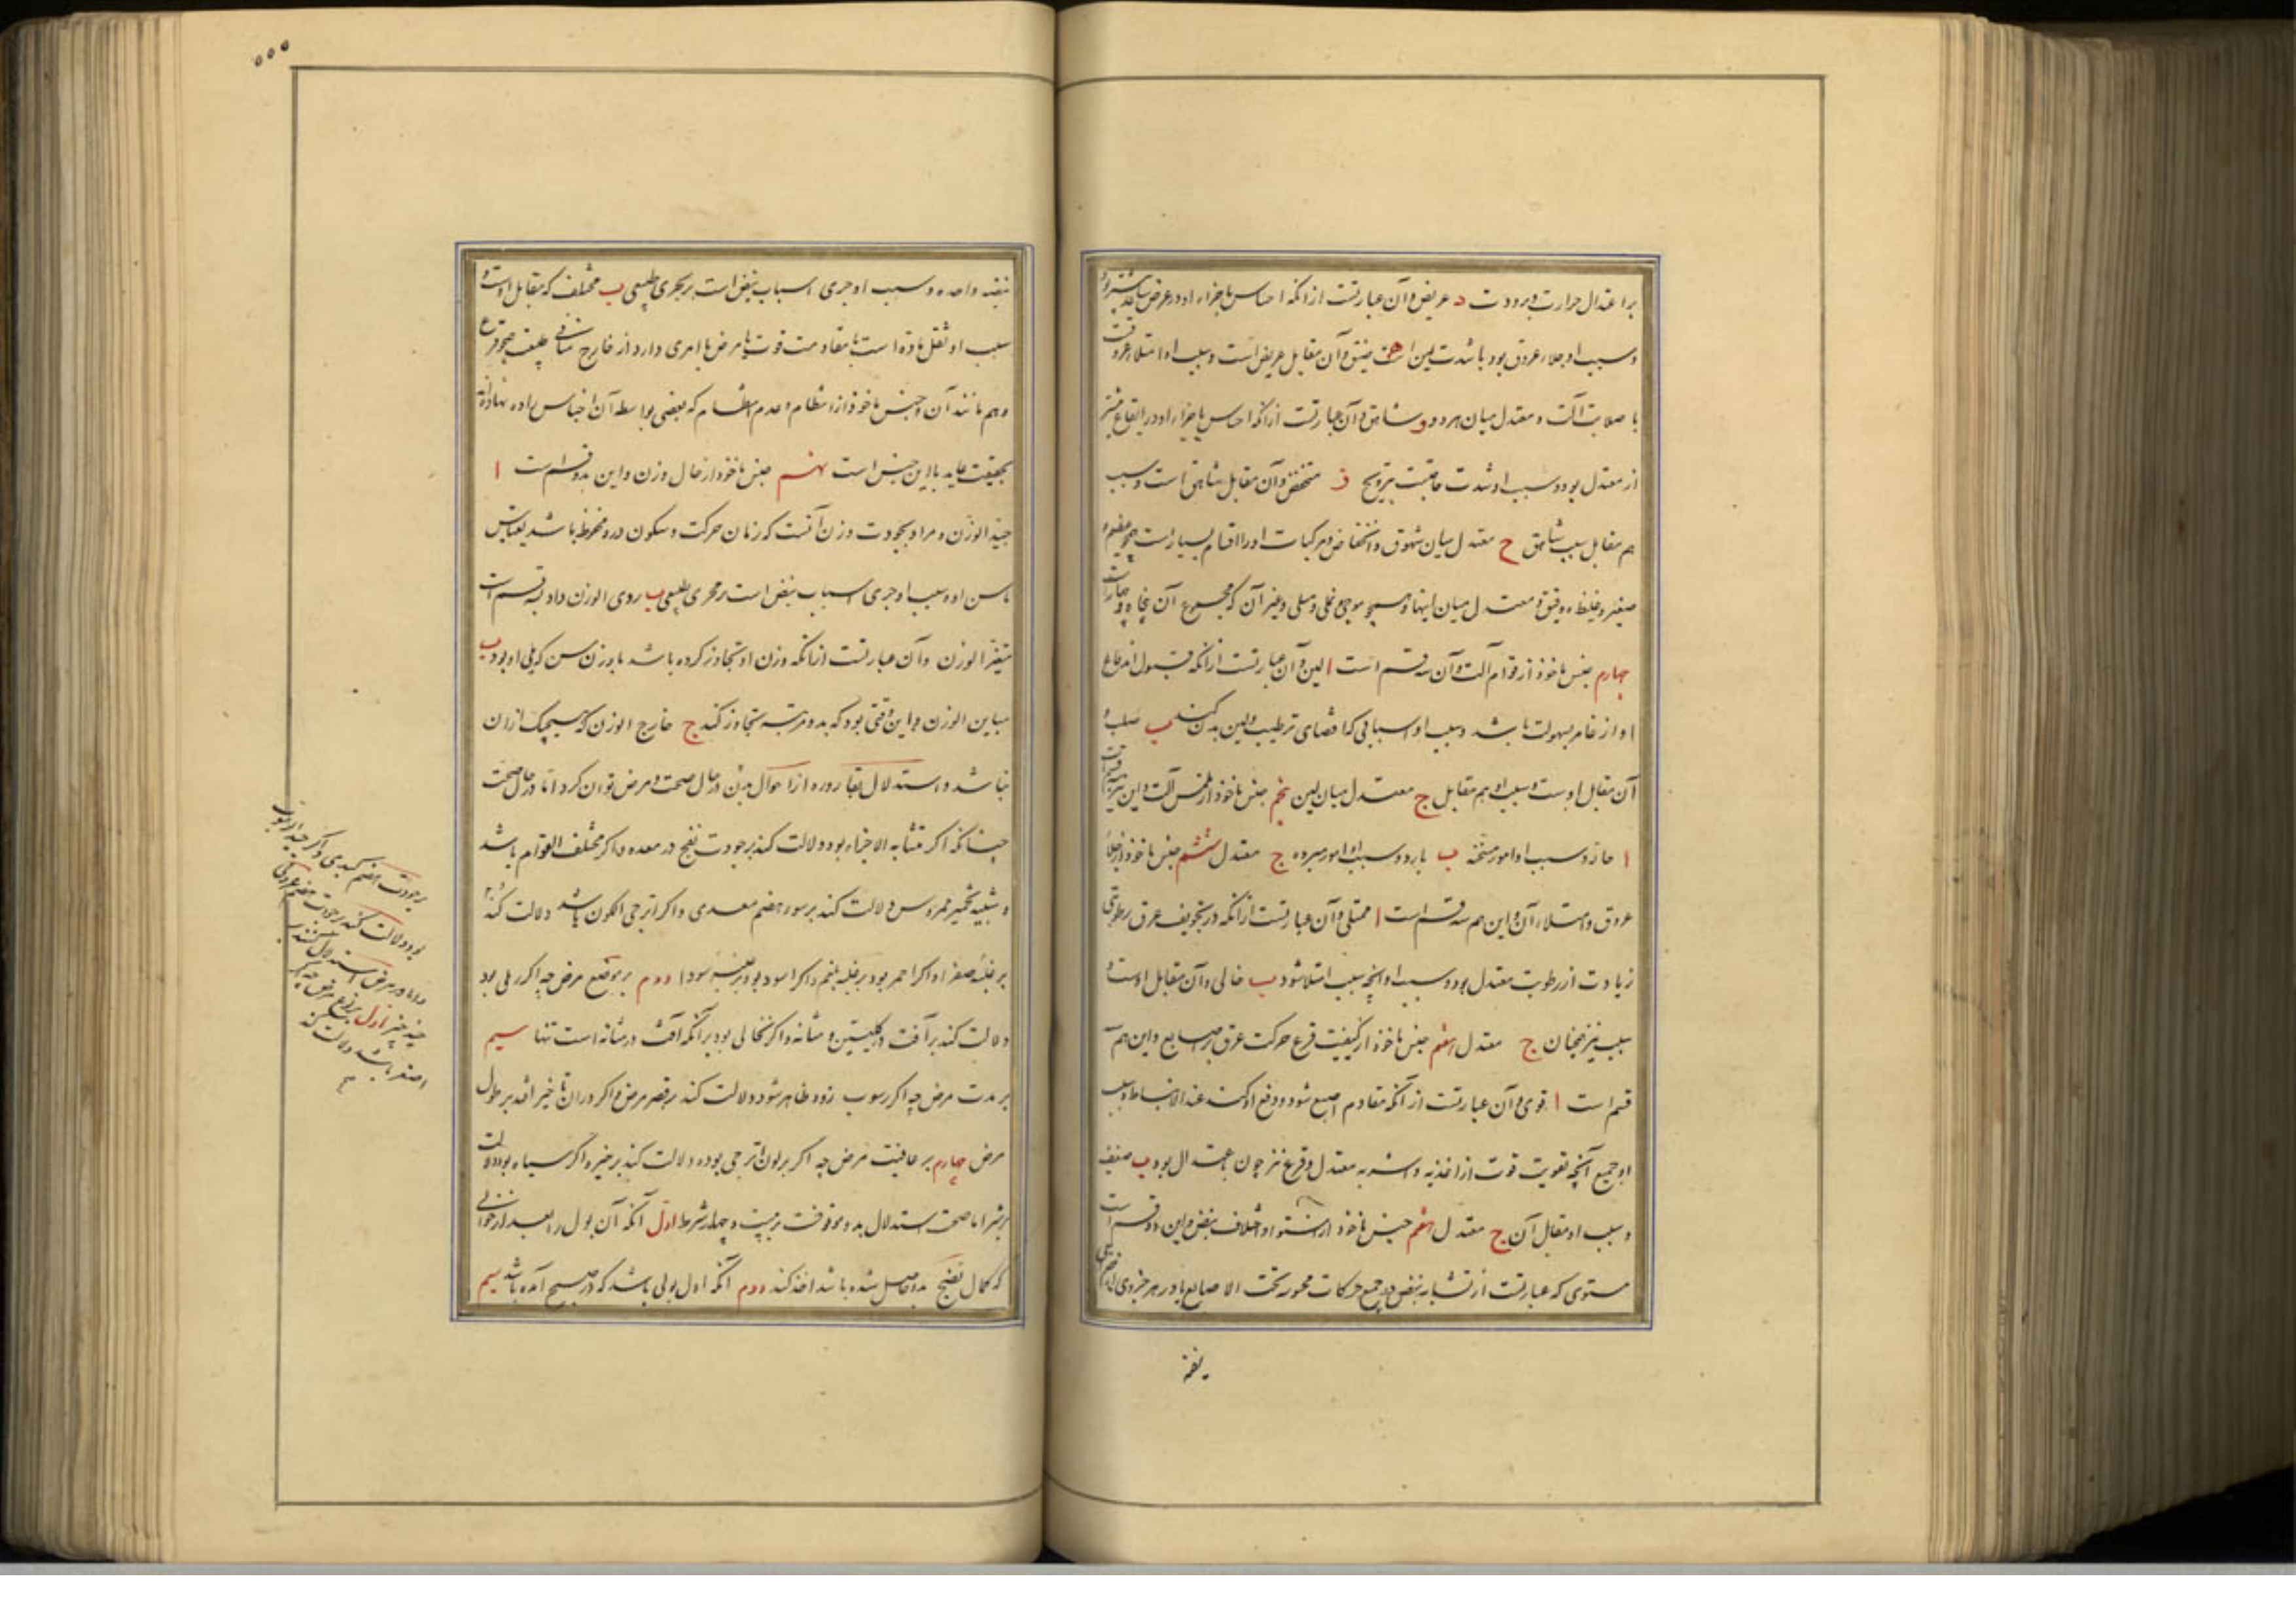 بر اعتدال حرارت و برودت د عریض و آن عبارتست از آنکه احساس باجزاء او در عرض بیشتر
و سبب او خلاء عروق بود یا شدت لین آلت ه ضیق و آن مقابل عریض است و سبب او امتلاء عروقست
با صلابت آلت و معتدل میان هر دو و شاهق و آن عبارتست از آنکه احساس باجزاء او در ارتفاع بیشتر
از معتدل بود و سبب او شدت حاجت بترویح ز منخفض و آن مقابل شاهق است و سبب
هم مقابل سبب شاهق ح معتدل میان شهوق و انخفاض و مرکبات او را اقسام بسیار است همچو عظیم و
صغیر و غلیظ و دقیق و معتدل میان اینها و همچو موجی نملی و مسلی و غیر آن که مجموع آن پنجاه و چهار است
چهارم جنس ماخوذ از قوام آلت و آن سه قسم است ا لین و آن عبارتست از آنکه قبول اندفاع
او از غامز بسهولت باشد و سبب او اسبابی که اقتضای ترطیب و لین بدن کنند ب صلب و
آن مقابل اوست و سبب او هم مقابل ج معتدل میان لین پنجم جنس ماخوذ از ملمس آلت و این نیز
ا حار و سبب او امور مسخنه ب بارد و سبب او امور مبرده ج معتدل ششم جنس ماخوذ از خلاء
عروق و امتلاء آن و این هم سه قسم است ا ممتلی و آن عبارتست از آنکه در تجویف عرق رطوبتی
زیادت از رطوبت معتدل بود و سبب او آنچه سبب امتلا شود ب خالی و آن مقابل اوست و
سبب نیز همچنان ج معتدل هفتم جنس ماخوذ از کیفیت قرع حرکت عرق مر اصابع و این هم سه
قسم است ا قوی و آن عبارتست از آنکه مقاوم اصبع شود و دفع او کند عند الانبساط و سبب
او جمیع آنچه تقویت قوت از اغذیه و اشربه معتدل و قرع نیز چون باعتدال بود ب ضعیف
و سبب او مقابل آن ج معتدل هشتم جنس ماخوذ از استوا و اختلاف نبض و این دو قسم است
مستوی که عبارتست از تشابه نبض در جمیع حرکات محسوسه تحت الاصابع یا در هر جزوی
نبضه
۵۵۵
نبضه واحده و سبب او جری اسباب نبض است بر مجری طبیعی ب مختلف که مقابل اوست و
سبب او ثقل ماده است یا مقاومت قوت با مرض یا امری دارد از خارج منافی طبیعت همچو فزع
و هم مانند آن و جنس ماخوذ از انتظام و عدم انتظام که بعضی بواسطه آن اجناس را ده نهاده‌اند
بحقیقت عاید با این جنس است نهم جنس ماخوذ از حال وزن و این بدو قسم است ا
جید الوزن و مراد بجودت وزن آنست که زمان حرکت و سکون درو محفوظ باشد بقیاس
با سن او و سبب او جری اسباب نبض است بر مجری طبیعی ب ردی الوزن و او سه قسم است
متغیر الوزن و آن عبارتست از آنکه وزن او تجاوز کرده باشد با وزن سن که یلی او بود ب
مباین الوزن و این وقتی بود که بدو مرتبه تجاوز کند ج خارج الوزن که هیچیک از آن
نباشد و استدلال بقاروره از احوال بدن در حال صحت و مرض توان کرد اما در حال صحت
چنانکه اگر متشابه الاجزاء بود دلالت کند بر جودت نضج در معده و اگر مختلف القوام باشد
و شبیه بخمیر ممروس دلالت کند بر سوء هضم معدی و اگر اترجی اللون باشد دلالت کند
بر غلبه صفرا و اگر احمر بود بر غلبه بلغم و اگر اسود بود بر غلبه سودا دوم بر موضع مرض چه اگر رملی بود
دلالت کند بر آفت در کلیتین و مثانه و اگر نخالی بود بر آنکه آفت در مثانه است تنها سیم
بر مدت مرض چه اگر رسوب زود ظاهر شود دلالت کند بر قصر مرض و اگر در آن تاخیر افتد بر طول
مرض چهارم بر عاقبت مرض چه اگر بر لون اترجی بود دلالت کند بر خیر و اگر سیاه بود دلالت
بر شر اما صحت استدلال بدو موقوفست بر بیست و چهار شرط اول آنکه آن بول را بعد از خوابی
که کمال نضج بدو حاصل شده باشد اخذ کنند دوم آنکه اول بولی باشد که در صبح آمده باشد سیم
بر جودت هضم کبدی و اگر جید
بود دلالت کند بر جودت هضم عروقی
و اما در مرض استدلال کنند
چند چیز اول بر نوع مرض چه اگر
اصفر باشد دلالت کند